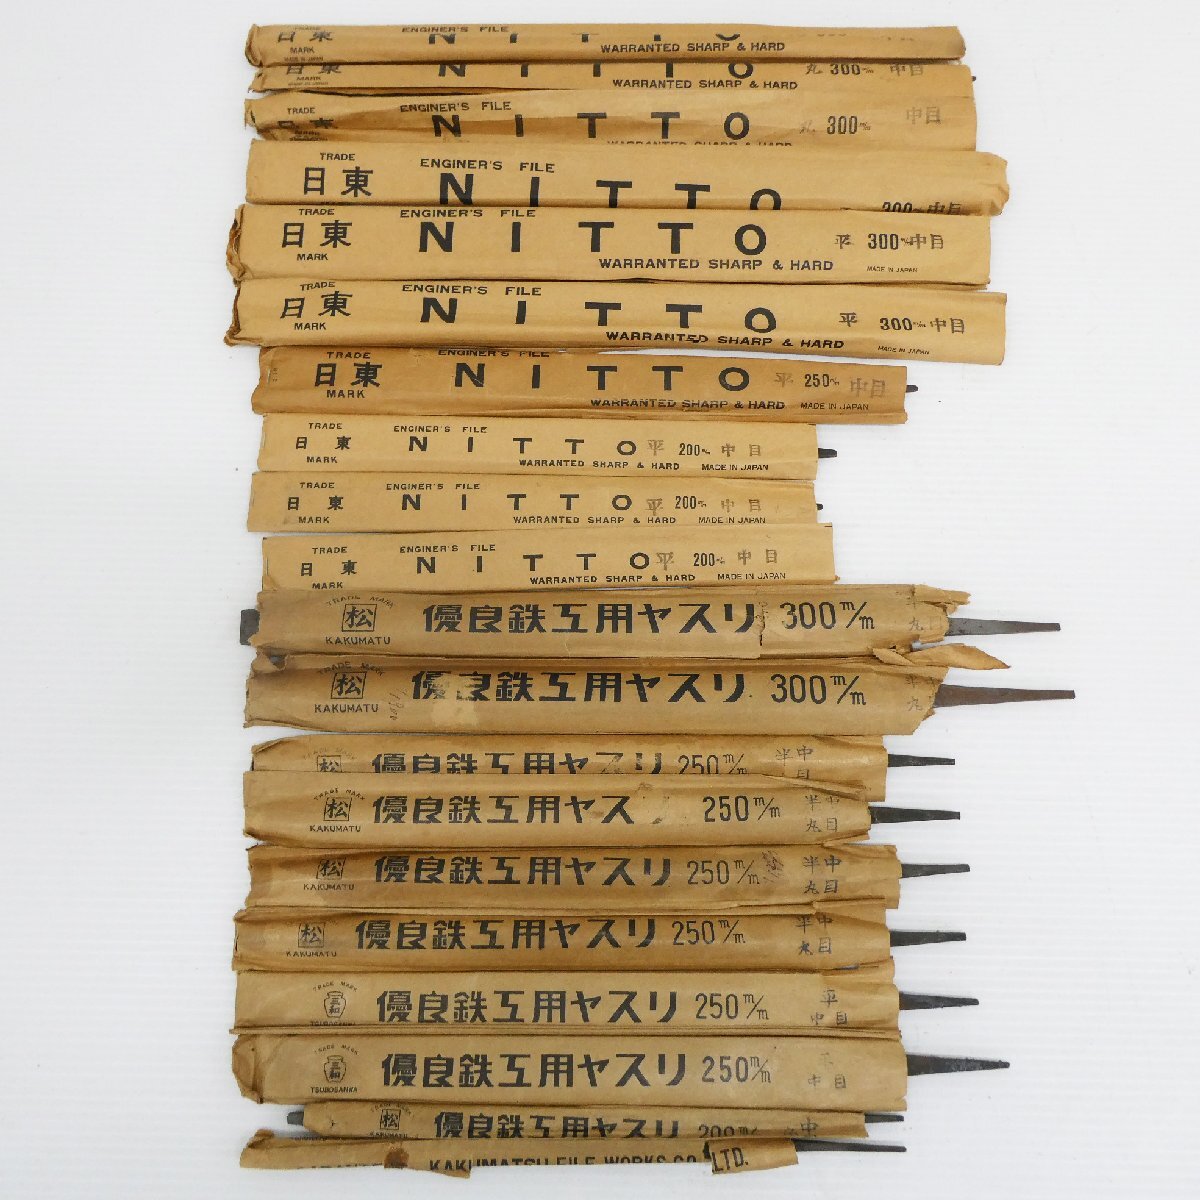 TRADE
日東
MARK
MADE IN JAPAN
ENGINER'S FILE
NITTO
WARRANTED SHARP & HARD
日東
MARK
NITTO
WARRANTED SHARP & HARD
丸 300m/m 中目
TRADE
日東
ENGINER'S FILE
NITTO
WARRANTED SHARP & HARD
丸 300m/m 中目
TRADE
日東
ENGINER'S FILE
NITTO
300m/m 中目
TRADE
日東
MARK
ENGINER'S FILE
NITTO
WARRANTED SHARP & HARD
平 300m/m 中目
MADE IN JAPAN
TRADE
日東
MARK
ENGINER'S FILE
NITTO
WARRANTED SHARP & HARD
平 300m/m 中目
MADE IN JAPAN
TRADE
日東
MARK
ENGINER'S FILE
NITTO
WARRANTED SHARP & HARD
平 250m/m 中目
MADE IN JAPAN
TRADE
日東
MARK
ENGINER'S FILE
NITTO
WARRANTED SHARP & HARD
平 200m/m 中目
MADE IN JAPAN
TRADE
日東
MARK
ENGINER'S FILE
NITTO
WARRANTED SHARP & HARD
平 200m/m 中目
MADE IN JAPAN
TRADE
日東
MARK
ENGINER'S FILE
NITTO
WARRANTED SHARP & HARD
平 200m/m 中目
MADE IN JAPAN
TRADE MARK
松
KAKUMATU
優良鉄工用ヤスリ 300m/m
半丸
TRADE MARK
松
KAKUMATU
優良鉄工用ヤスリ 300m/m
半丸
松
優良鉄工用ヤスリ 250m/m
半 中目
TRADE MARK
松
KAKUMATU
優良鉄工用ヤス 250m/m
半丸 中目
松
KAKUMATU
優良鉄工用ヤスリ 250m/m
半丸 中目
松
KAKUMATU
優良鉄工用ヤスリ 250m/m
半丸 中目
TRADE MARK
三和
TSUBOSANKA
優良鉄工用ヤスリ 250m/m
平
中目
TRADE MARK
三和
TSUBOSANKA
優良鉄工用ヤスリ 250m/m
中目
松
KAKUMATU
優良鉄工用ヤスリ 200m/m
中
KAKUMATSU FILE WORKS CO LTD.